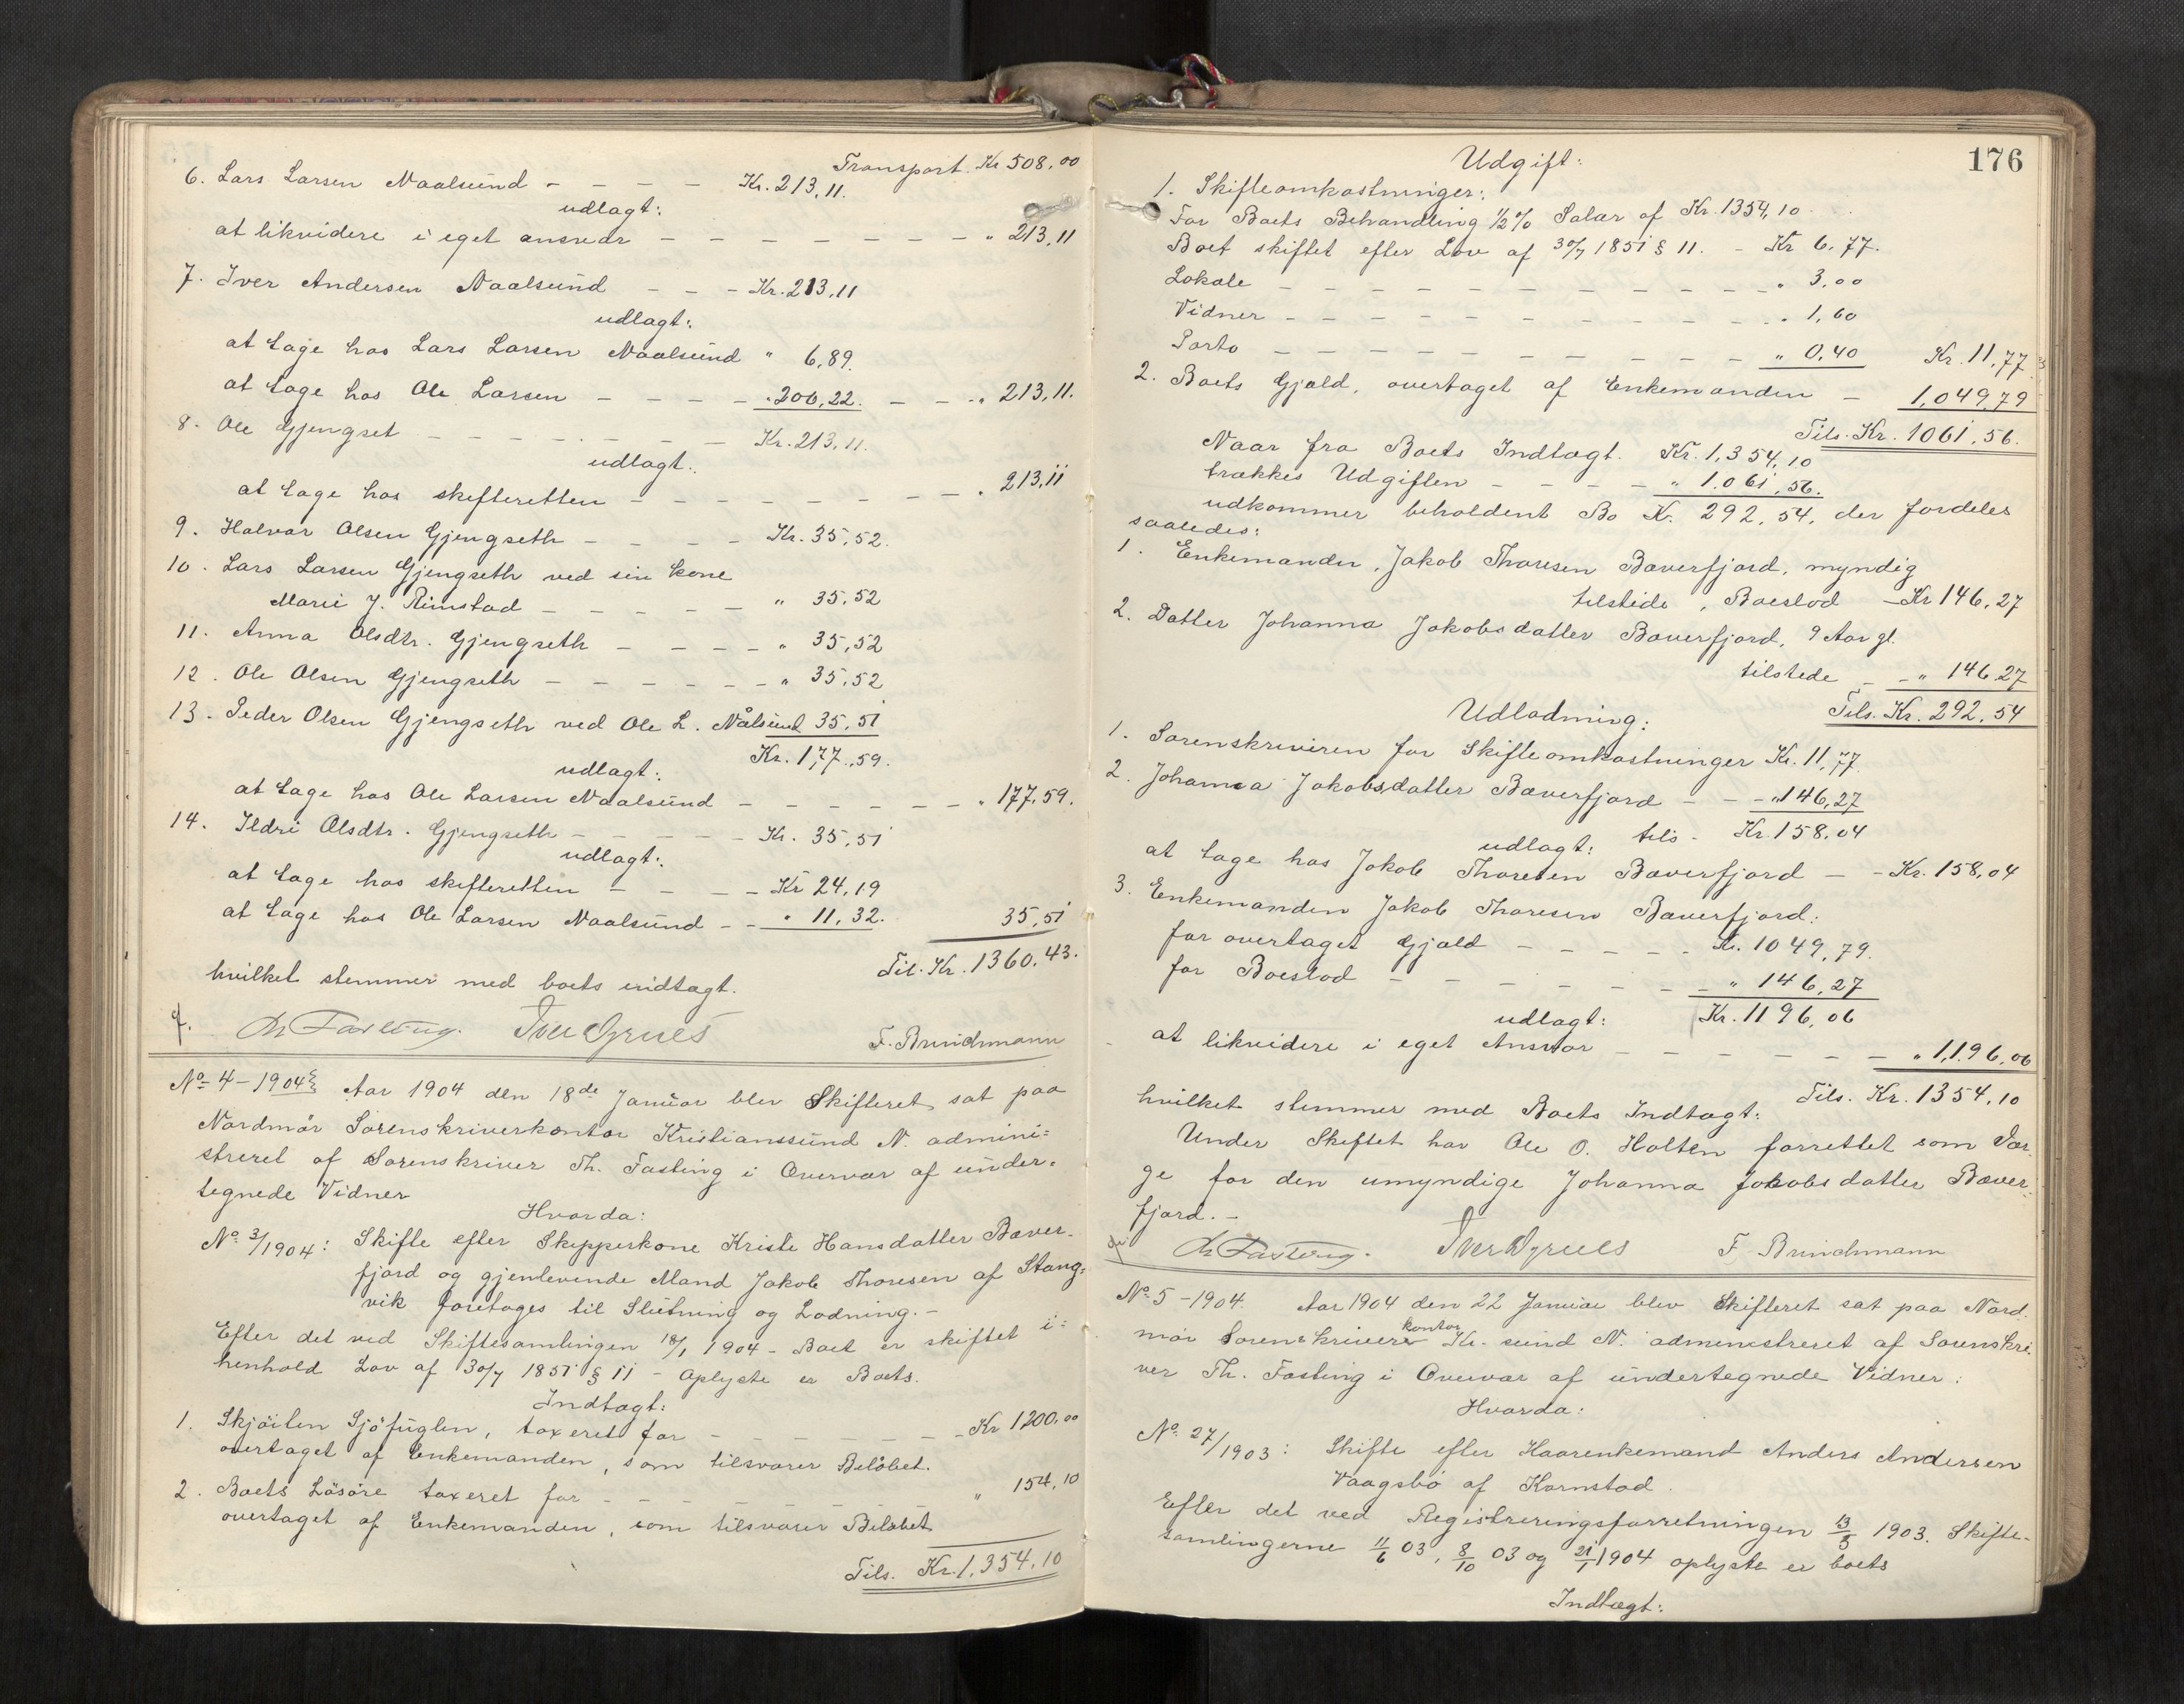 Transport Kr 508,00
6. Lars Larsen Naalsund - - - - Kr. 213,11.
udlagt:
at likvidere i eget ansvar - - - - - - - „ 213,11
7. Iver Andersen Naalsund - - - Kr. 213,11
udlagt:
at tage hos Lars Larsen Naalsund „ 6,89.
at tage hos Ole Larsen - - - - „ 206,22. - - - „ 213,11.
8. Ole Gjengset - - - - - - - Kr. 213,11.
udlagt:
at tage hos skifteretten - - - - - - - - „ 213,11
9. Halvar Olsen Gjengseth - - - - Kr. 35,52.
10. Lars Larsen Gjengseth ved sin kone
Marie J. Rimstad - - - - - „ 35,52
11. Anna Olsdtr. Gjengseth - - - - „ 35,52
12. Ole Olsen Gjengseth - - - - - - „ 35,52
13. Peder Olsen Gjengseth ved Ole L. Nålsund 35,51
Kr. 177,59.
udlagt:
at tage hos Ole Larsen Naalsund - - - - - - - „ 177,59.
14. Ildri Olsdtr. Gjengseth - - - - - Kr. 35,51
udlagt:
at tage hos skifteretten - - - - Kr 24,19
at tage hos Ole Larsen Naalsund - - „ 11,32. 35,51
Til. Kr. 1360,43.
hvilket stemmer med boets indtægt.
Th Fasting. Iver Grues F. Brinchmann
No 4-1904 Aar 1904 den 18de Januar blev Skifteret sat paa
Nordmör Sorenskriverkontor Kristianssund N. admini=
streret af Sorenskriver Th. Fasting i Overvær af under=
tegnede Vidner
Hvorda:
No 3/1904: Skifte efter Skipperkone Kriste Hansdatter Bæver-
fjord og gjenlevende Mand Jakob Thoresen af Stang=
vik foretages til Slutning og Lodning.-
Efter det ved Skiftesamlingen 18/1 1904 - Boet er skiftet i=
henhold Lov af 30/7 1851 § 11 - Oplyste er Boets.
Indtægt:
1. Skjöiten Sjöfuglen, taxeret for - - - - - - - Kr 1200,00
overtaget af Enkemanden, som tilsvarer Belöbet.
2. Boets Lösöre taxeret for - - - - - - - „ 154,10
overtaget af Enkemanden, som tilsvarer Belöbet
Tils. Kr. 1,354,10
176
Udgift:
1. Skifteomkostninger:
For Boets Behandling 1/2% Salær af Kr. 1354,10
Boet skiftet efter Lov af 30/7 1851 § 11. - Kr 6,77.
Lokale - - - - - - - - - - - - „ 3,00
Vidner - - - - - - - - - - - - „ 1,60
Porto - - - - - - - - - - - „ 0,40 Kr. 11,77
2. Boets Gjæld, overtaget af Enkemanden - 1,049,79
Tils. Kr. 1061,56.
Naar fra Boets Indtægt. Kr. 1,354,10
trækkes Udgiften - - - - - „ 1.061,56.
udkommer beholdent Bo K. 292,54, der fordeles
saaledes:
1. Enkemanden, Jakob Thoresen Bæverfjord, myndig
tilstede, Boeslod - Kr 146,27
2. Datter Johanna Jakobsdatter Bæverfjord, 9 Aar gl.
tilstede - - „ 146,27
Tils. Kr. 292,54
Udlodning:
1. Sorenskriveren for Skifteomkostninger Kr. 11,77.
2. Johanna Jakobsdatter Bæverfjord - - - „ 146,27
tils. Kr. 158,04
udlagt:
at tage hos Jakob Thoresen Bæverfjord - - Kr. 158,04
3. Enkemanden Jakob Thoresen Bæverfjord:
for overtaget Gjæld - - - - - Kr. 1049,79.
for Boeslod - - - - - - - - „ 146,27
Kr. 1196,06
udlagt:
at likvidere i eget Ansvar - - - - - - - „ 1,196,06
Tils. Kr. 1354,10
hvilket stemmer med Boets Indtægt:
Under Skiftet har Ole O. Holten forrettet som Vær-
ge for den umyndige Johanna Jakobsdatter Bæver-
fjord.-
Th Fasting. Iver Grues F. Brinchmann
No 5-1904. Aar 1904 den 22 Januar blev Skifteret sat paa Nord-
mör Sorenskriverkontor Kr.-sund N. administreret af Sorenskri-
ver Th. Fasting i Overvær af undertegnede Vidner:
Hvorda:
No 27/1903: Skifte efter Kaarenkemand Anders Andersen
Vaagsbö af Kornstad.
Efter det ved Registreringsforretningen 13/5 1903. Skifte-
samlingerne 11/6 03, 8/10 03 og 21/1 1904 oplyste er boets
Indtægt: